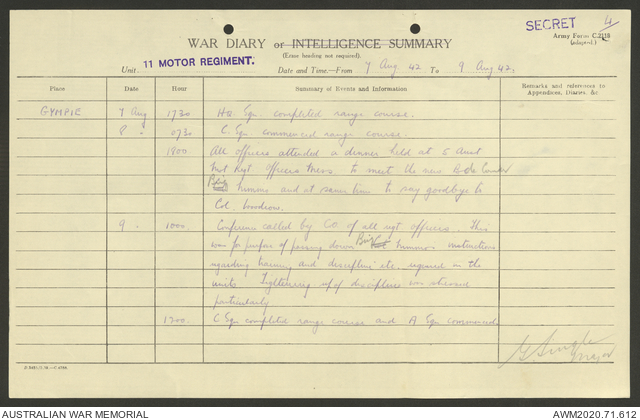 SECRET 4
WAR DIARY or INTELLIGENCE SUMMARY
Army Form C.2118
(adapted.)
(Erase heading not required).
Unit 11 MOTOR REGIMENT. Date and Time.—From 7 Aug 42 To 9 Aug 42.
Place Date Hour Summary of Events and Information Remarks and references to Appendices, Diaries, &c
GYMPIE 7 Aug 1730 HQ Sqn completed range course.
8 " 0730 C Sqn commenced range course.
1900 All officers attended a dinner held at 5 Aust
Mot Regt Officers Mess to meet the new Bde Comdr
Nimmo and at same time to say goodbye to
Col.
9 " 1000 Conference called by CO of all regt officers. This
was for purpose of passing down Brig Nimmo's instructions
regarding training and discipline etc. required in the
units. Tightening up of discipline was stressed
particularly
1300. C Sqn completed range course and A Sqn commenced.
Major
AUSTRALIAN WAR MEMORIAL AWM2020.71.612